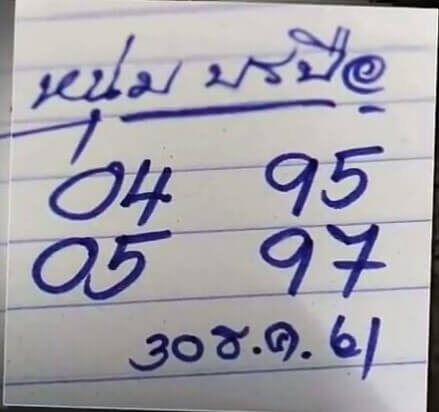 หนุ่ม บรบือ
04 95
05 97
30 ธ.ค. 61